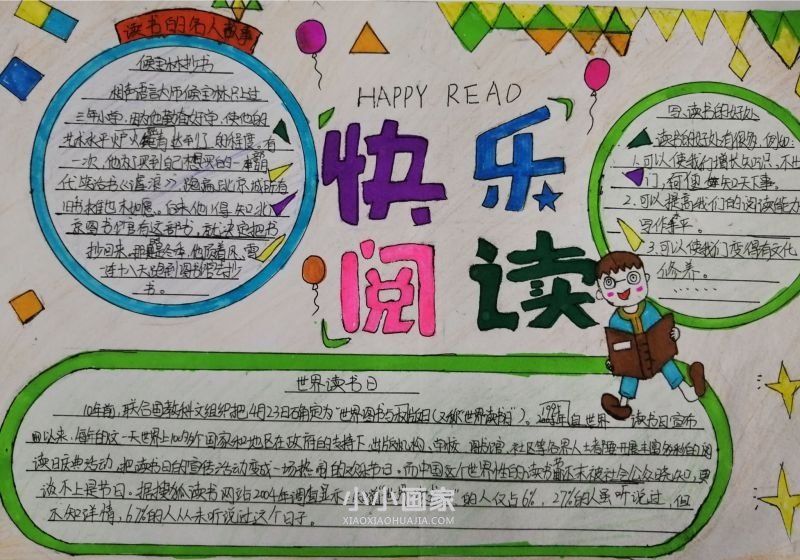 读书的名人故事
侯宝林抄书
相声语言大师侯宝林只上过
三年小学,因为他勤奋好学,使他的
艺术水平炉火纯青 达到了 的程度。有
一次,他为了买到自己想买的一本明
代笑话书《谑浪》,跑遍北京城所有
旧书摊也未如愿。后来他得知北
京图书馆有这部书,就决定把书
抄回来。 他顶着风、雪
连十八天跑到图书馆去抄
书。
HAPPY READ
快乐
阅读
写、读书的好处
读书的好处有很多,例如:
1.可以使我们增长知识,不出
门,何便知天下事。
2.可以提高我们的阅读能力
写作水平。
3.可以使我们变得有文化
修养。
……
世界读书日
10年前,联合国教科文组织把4月23日确定为"世界图书与版权日(又称"世界读书日")。 自世界 读书日宣布
以来,每年的这一天世界上100多个国家和地区在政府的支持下,出版机构、学校、图书馆、社区等各界人士都要开展丰富多彩的阅
读日庆典活动,把读书日的宣传活动变成一场热闹的欢乐节日。而中国这个世界性的读书节不未被社会公众晓知,更
谈不上是节日。据搜狐读书网站2004年调查显示, 的人仅占6%,27%的人虽听说过,但
不知详情,67%的人从未听说过这个日子。
小小画家
XIAOXIAOHUAJIA.COM